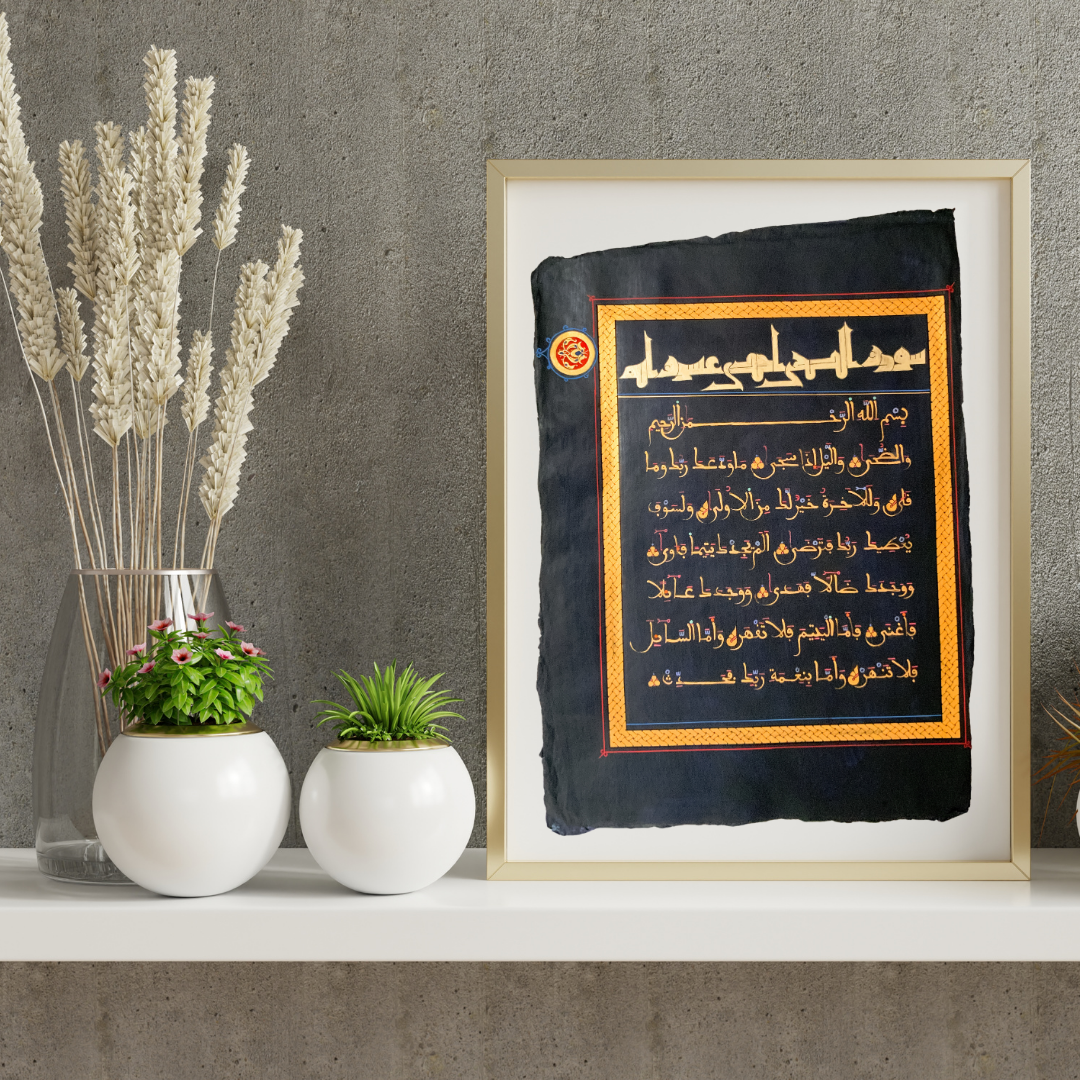 سورة الضحى احدى عشرة اية
بِسْمِ اللَّهِ الرَّحْمَنِ الرَّحِيمِ
وَالضُّحَى وَالَّيْلِ إِذَا سَجَى مَا وَدَّعَكَ رَبُّكَ وَمَا
قَلَى وَلَلْآخِرَةُ خَيْرٌ لَّكَ مِنَ الْأُولَى وَلَسَوْفَ
يُعْطِيكَ رَبُّكَ فَتَرْضَى أَلَمْ يَجِدْكَ يَتِيمًا فَآوَى
وَوَجَدَكَ ضَالًّا فَهَدَى وَوَجَدَكَ عَائِلًا
فَأَغْنَى فَأَمَّا الْيَتِيمَ فَلَا تَقْهَرْ وَأَمَّا السَّائِلَ
فَلَا تَنْهَرْ وَأَمَّا بِنِعْمَةِ رَبِّكَ فَحَدِّثْ